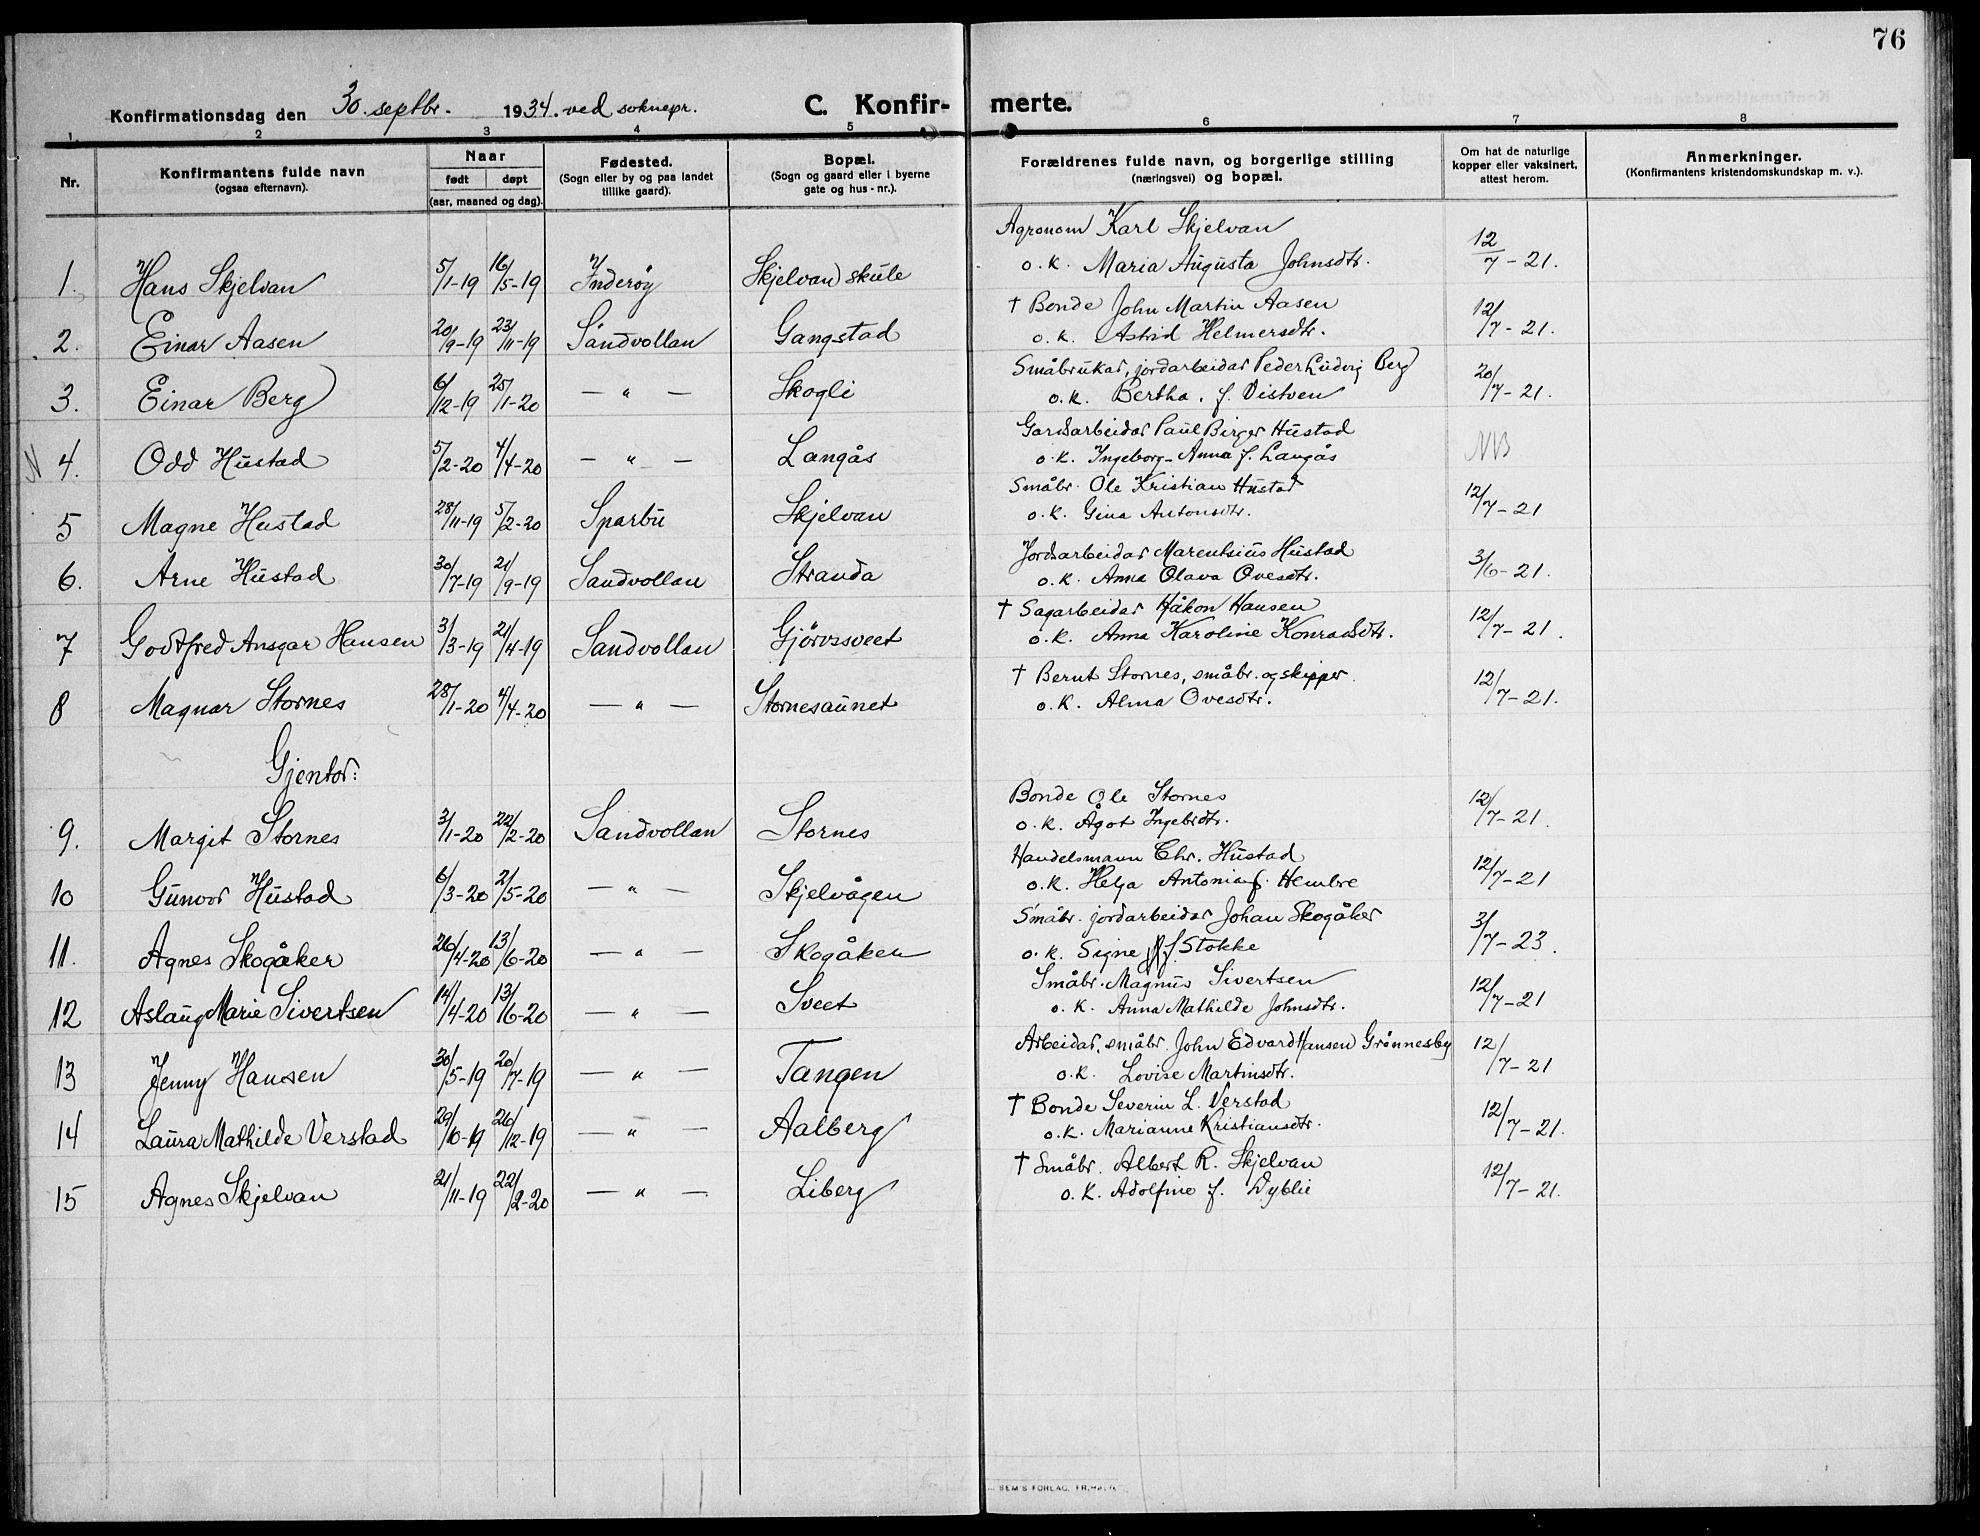 76
Konfirmationsdag den 30. septbr. 1934. ved soknepr. C. Konfir- merte.
1. 2 3 4 5 6 7 8
Nr.
Konfirmantens fulde navn
(ogsaa efternavn).
Naar
født døpt
(aar, maaned og dag).
Fødested.
(Sogn eller by og paa landet
tillike gaard).
Bopæl.
(Sogn og gaard eller i byerne
gate og hus-nr.).
Forældrenes fulde navn, og borgerlige stilling
(næringsvei) og bopæl.
Om hat de naturlige
kopper eller vaksinert,
attest herom.
Anmerkninger.
(Konfirmantens kristendomskundskap m. v.).
Agronom Karl Skjelvan
1. Hans Skjelvan 5/1-19 16/5-19 Inderøy Skjelvan skule o. k. Maria Augusta Johnsdtr. 12/7-21.
† Bonde John Martin Aasen
2. Einar Aasen 20/9-19 23/11-19 Sandvollan Gangstad o. k. Astrid Helmersdtr. 12/7-21.
Småbrukar, jordarbeidar Peder Ludvig Berg
3. Einar Berg 6/12-19 25/1-20 — " — Skogli o. k. Bertha. f. Vistven 20/7-21.
Gardsarbeidar Paul Birger Hustad
4. Odd Hustad 5/2-20 4/4-20 — " — Langås o. k. Ingeborg-Anna f. Langås NB
Småbr. Ole Kristian Hustad
5 Magne Hustad 28/11-19 5/2-20 Sparbu Skjelvan o. k. Gina Antonsdtr. 12/7-21
Jordarbeidar Marentsius Hustad
6. Arne Hustad 30/7-19 21/9-19 Sandvollan Stranda o. k. Anna Olava Ovesdtr. 3/6-21.
† Sagarbeidar Håkon Hansen
7 Godtfred Ansgar Hansen 3/3-19 21/4-19 Sandvollan Gjørvssveet o. k. Anna Karoline Konradsdtr. 12/7-21.
† Bernt Stornes, småbr. og skipper
8 Magnar Stornes 28/1-20 4/4-20 — " — Stornesaunet o. k. Alma Ovesdtr. 12/7-21.
Gjentor:
Bonde Ole Stornes
9. Margit Stornes 3/1-20 22/2-20 Sandvollan Stornes o. k. Ågot Ingebrdtr. 12/7-21.
Handelsmann Chr. Hustad
10 Gunvor Hustad 6/3-20 2/5-20 — " — Skjelvågen o. k. Helga Antonia f. Hembre 12/7-21
Småbr. jordarbeidar Johan Skogåker
11. Agnes Skogåker 26/4-20 13/6-20 — " — Skogåken o. k. Signe f. Stokke 3/7-23.
Småbr. Magnus Sivertsen
12 Aslaug Marie Sivertsen 14/4-20 13/6-20 — " — Sveet o. k. Anna Mathilde Johnsdtr. 12/7-21
Arbeidar, småbr. John Edvard Hansen Grønnesby
13 Jenny Hansen 30/5-19 20/7-19 — " — Tangen o. k. Lovise Martinsdtr. 12/7-21
† Bonde Severin L. Verstad
14 Laura Mathilde Verstad 29/10-19 26/12-19 — " — Aalberg o. k. Marianne Kristiansdtr. 12/7-21.
† Småbr. Albert R. Skjelvan
15 Agnes Skjelvan 21/11-19 22/2-20 — " — Liberg o. k. Adolfine f. Dyblie 12/7-21.
SEM'S FORLAG,